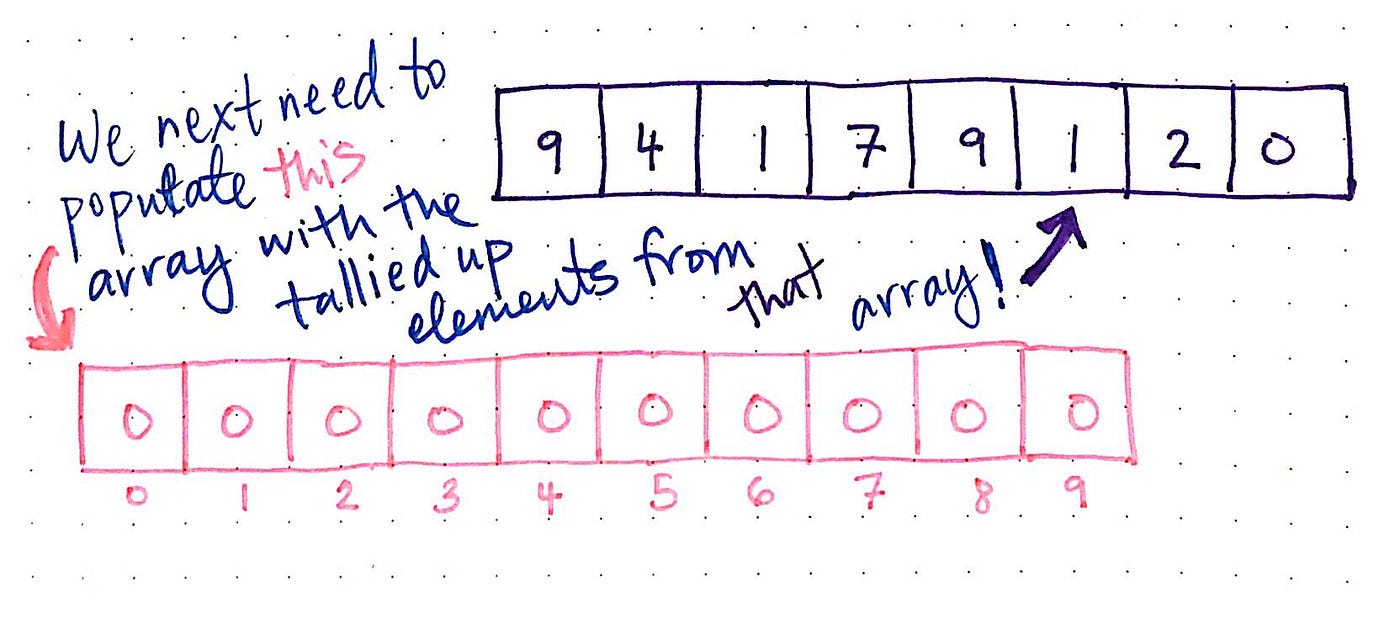 We next need to
populate this
array with the
tallied up
elements from that array!
9 4 1 7 9 1 2 0
0 0 0 0 0 0 0 0 0 0
0 1 2 3 4 5 6 7 8 9